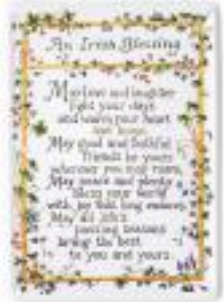 An Irish Blessing
May love and laughter
light your days
and warm your heart
and home
May good and faithful
friends be yours
wherever you may roam,
May peace and plenty
bless your world
with joy that long endures,
May all life's
passing seasons
bring the best
to you and yours